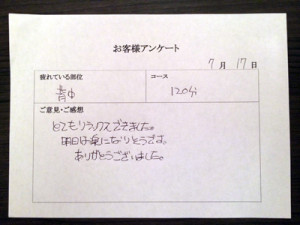 お客様アンケート
7月17日
疲れている部位
コース
背中
120分
ご意見・ご感想
とてもリラックスできました。
明日は楽になりそうです。
ありがとうございました。